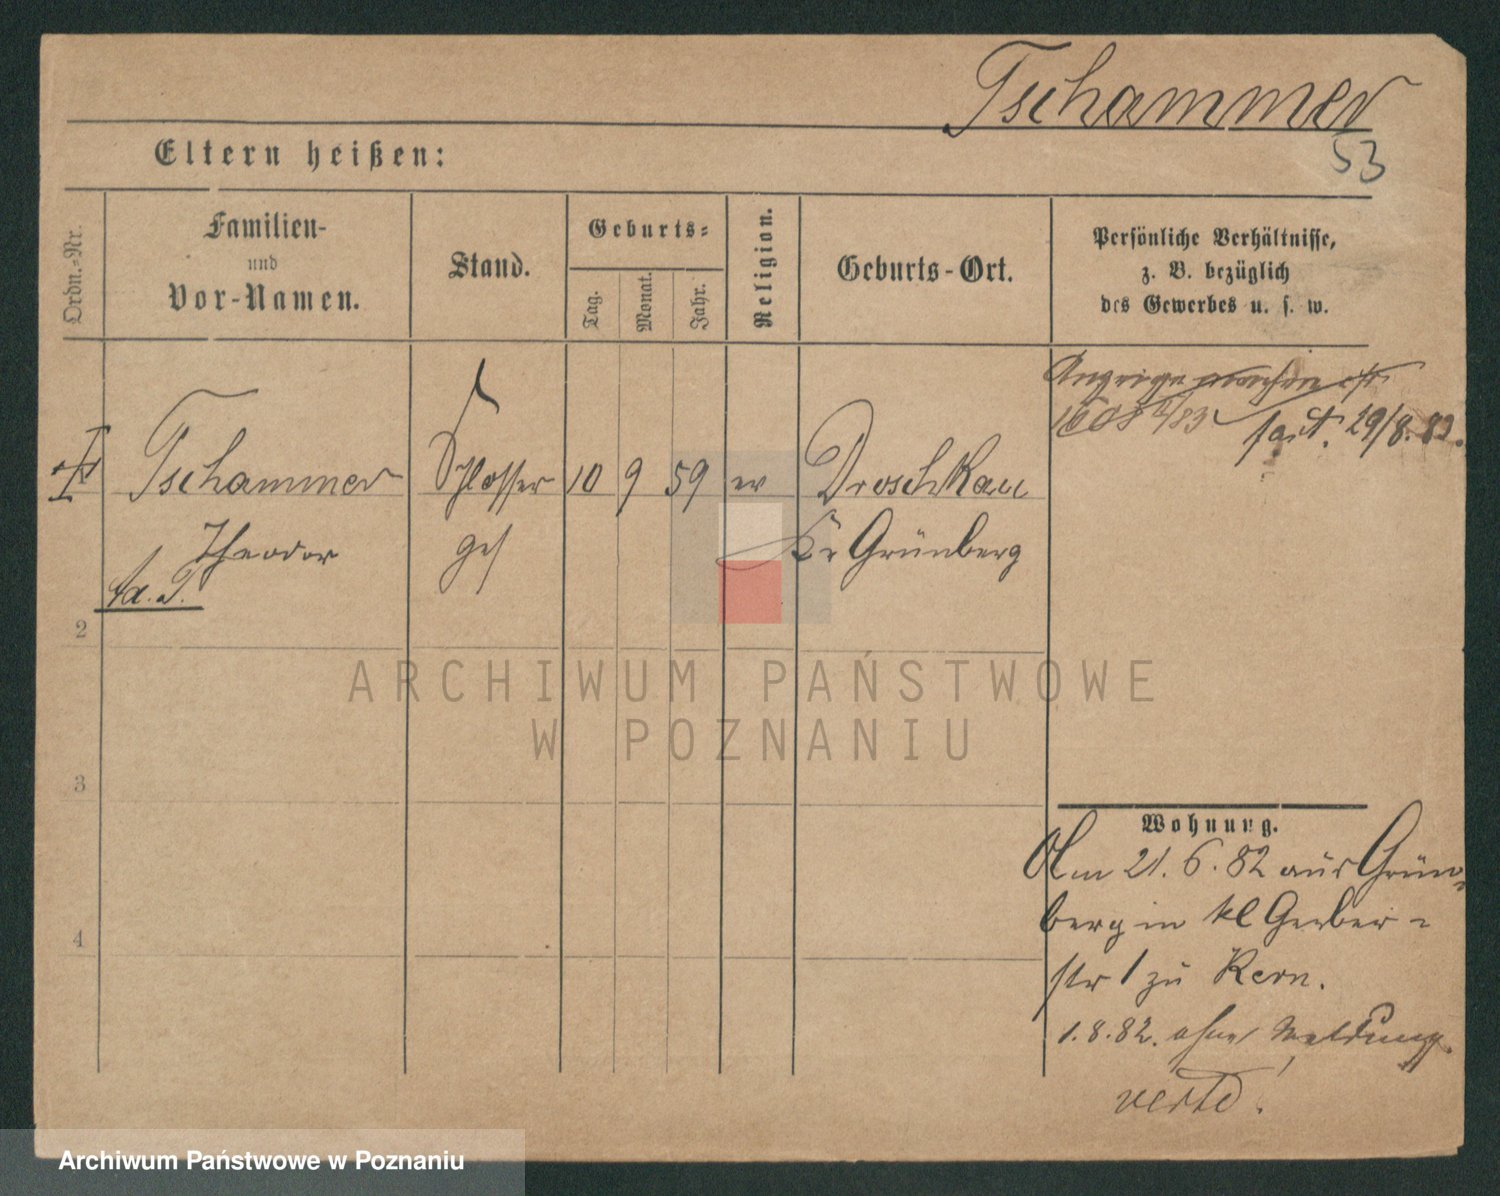 Tschammer
53
Eltern heißen:
Ordn.-Nr.
Familien-
und
Vor-Namen.
Stand.
Geburts-
Tag.
Monat.
Jahr.
Religion.
Geburts-Ort.
Persönliche Verhältnisse,
z. B. bezüglich
des Gewerbes u. s. w.
Anzeige
1608 83 29/8. 83.
Tschammer Schlosser 10 9 59 ev Droschkau
Theodor ges Kr Grünberg
2
3
4
Wohnung.
Am 21. 6. 82 aus Grün-
berg in kl Gerber-
str 1 zu Kern.
1. 8. 82. ohne Meldung
ARCHIWUM PAŃSTWOWE
W POZNANIU
Archiwum Państwowe w Poznaniu